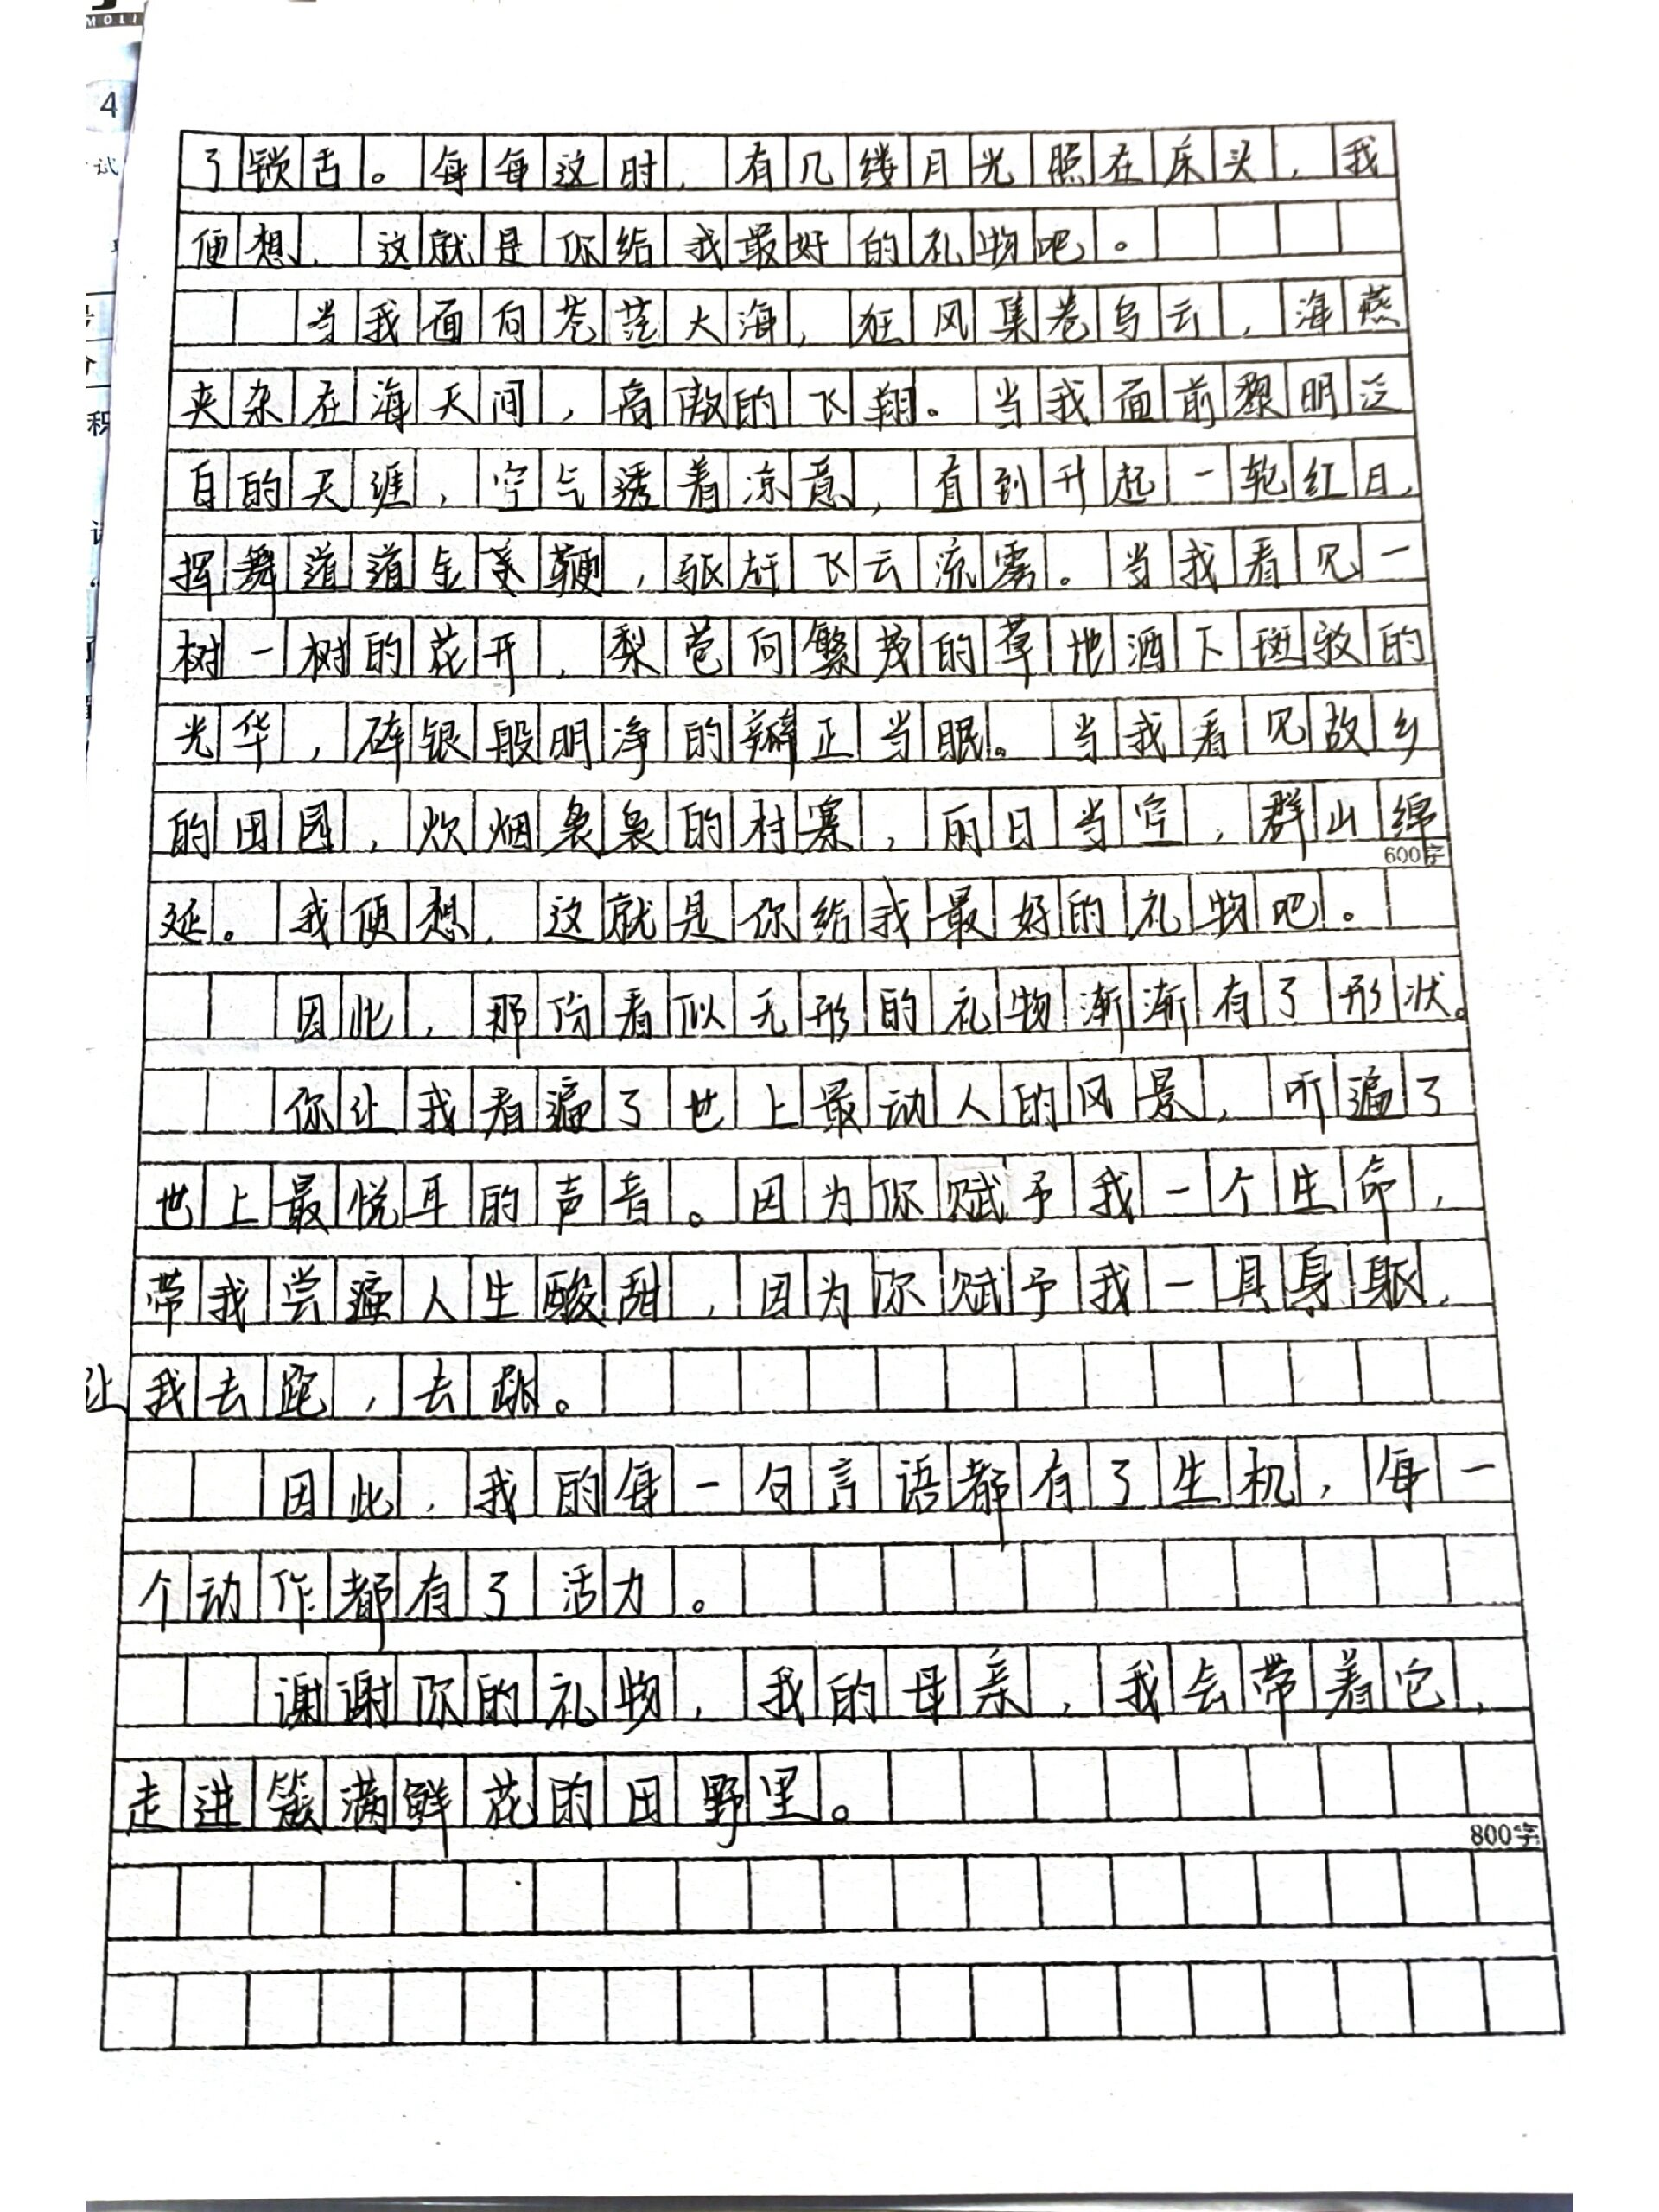 MOLI
4
试
积
了锁舌。每每这时，有几缕月光照在床头，我
便想，这就是你给我最好的礼物吧。
当我面向苍茫大海，狂风集卷乌云，海燕
夹杂在海天间，高傲的飞翔。当我面前黎明泛
白的天涯，空气透着凉意，直到升起一轮红日，
挥舞道道金美鞭，驱赶飞云流雾。当我看见一
树一树的花开，梨苞向繁茂的草地洒下斑驳的
光华，碎银般明净的瓣正当眠。当我看见故乡
的田园，炊烟袅袅的村寨，丽日当空，群山绵
600字
延。我便想，这就是你给我最好的礼物吧。
因此，那份看似无形的礼物渐渐有了形状。
你让我看遍了世上最动人的风景，听遍了
世上最悦耳的声音。因为你赋予我一个生命，
带我尝遍人生酸甜，因为你赋予我一具身躯，
让我去跑，去跳。
因此，我的每一句言语都有了生机，每一
个动作都有了活力。
谢谢你的礼物，我的母亲，我会带着它，
走进簇满鲜花的田野里。
800字